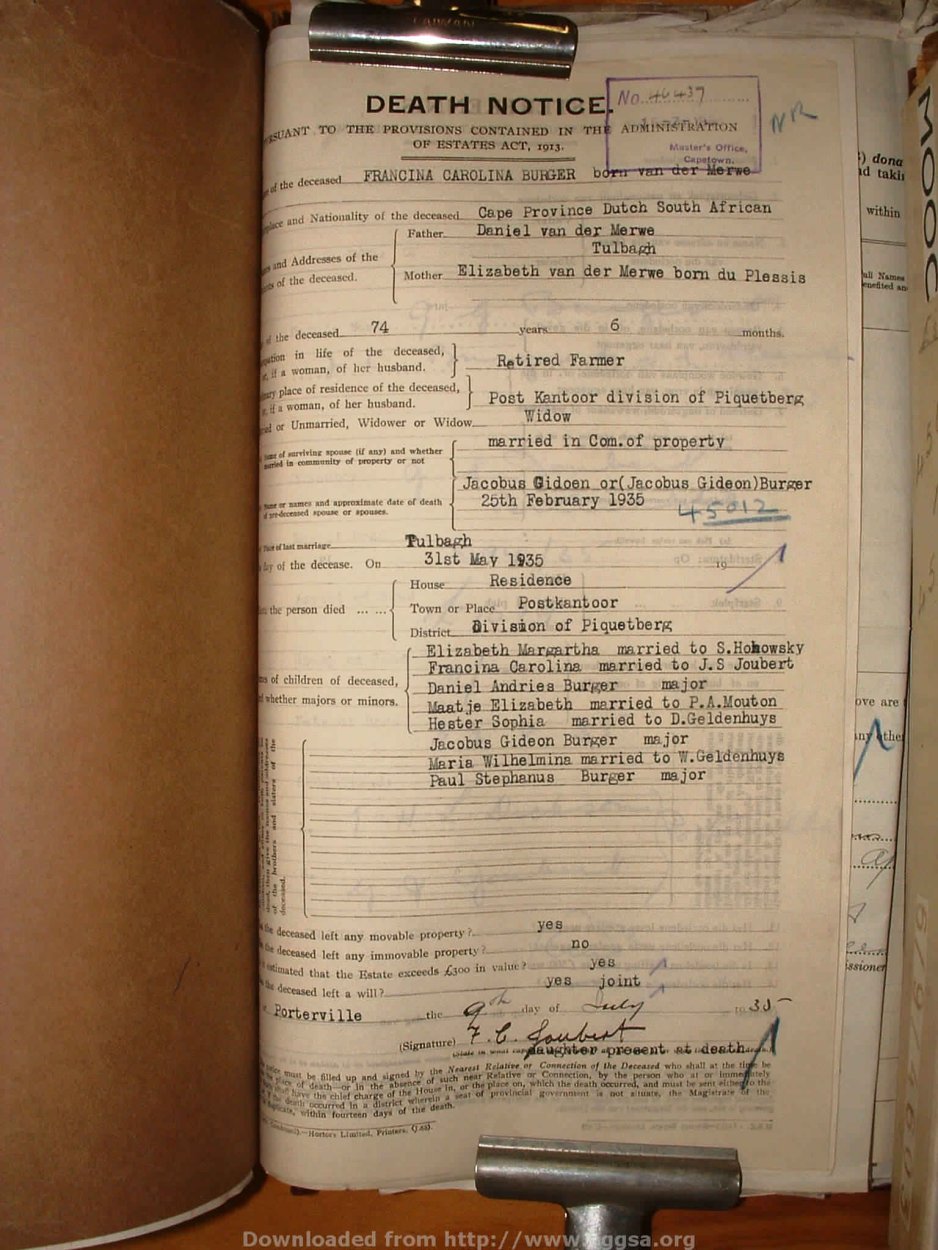 TAIWAN
DEATH NOTICE.
No. 46437
NR
PURSUANT TO THE PROVISIONS CONTAINED IN THE ADMINISTRATION
OF ESTATES ACT, 1913.
Master's Office,
Capetown.
of the deceased FRANCINA CAROLINA BURGER born van der Merwe
place and Nationality of the deceased Cape Province Dutch South African
Father Daniel van der Merwe
Tulbagh
and Addresses of the
of the deceased.
Mother Elizabeth van der Merwe born du Plessis
of the deceased 74 years 6 months.
in life of the deceased,
if a woman, of her husband.
Retired Farmer
place of residence of the deceased,
if a woman, of her husband.
Post Kantoor division of Piquetberg
or Unmarried, Widower or Widow Widow
Name of surviving spouse (if any) and whether
married in community of property or not
married in Com.of property
Jacobus Gidoen or(Jacobus Gideon)Burger
Name or names and approximate date of death
of pre-deceased spouse or spouses.
25th February 1935
45012
Place of last marriage Tulbagh
day of the decease. On 31st May 1935 19
House Residence
the person died ... ... Town or Place Postkantoor
District Division of Piquetberg
Elizabeth Margartha married to S.Hohowsky
Francina Carolina married to J.S Joubert
of children of deceased,
whether majors or minors.
Daniel Andries Burger major
Maatje Elizabeth married to P.A.Mouton
Hester Sophia married to D.Geldenhuys
Jacobus Gideon Burger major
Maria Wilhelmina married to W.Geldenhuys
Paul Stephanus Burger major
of the brothers and sisters of the
deceased.
the deceased left any movable property? yes
the deceased left any immovable property? no
estimated that the Estate exceeds £300 in value? yes
the deceased left a will? yes joint
Porterville the 9th day of July 1935
(Signature) F. C. Joubert
daughter present at death
must be filled up and signed by the Nearest Relative or Connection of the Deceased who shall at the time be
place of death—or in the absence of such near Relative or Connection, by the person who at or immediately
have the chief charge of the House in, or the place on, which the death occurred, and must be sent either to the
death occurred in a district wherein a seat of provincial government is not situate, the Magistrate of the
within fourteen days of the death.
Hortors Limited, Printers.
dona
takin
within
ove are
any othe
MOOC
Downloaded from http://www.eggsa.org